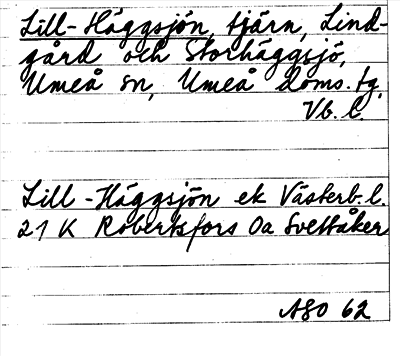 Lill-Häggsjön, tjärn, Lind-
gård och Storhäggsjö,
Umeå sn, Umeå doms. tg.
Vb. l.
Lill-Häggsjön ek Västerb. l.
21 K Robertsfors Oa Svettåker
ASO 62